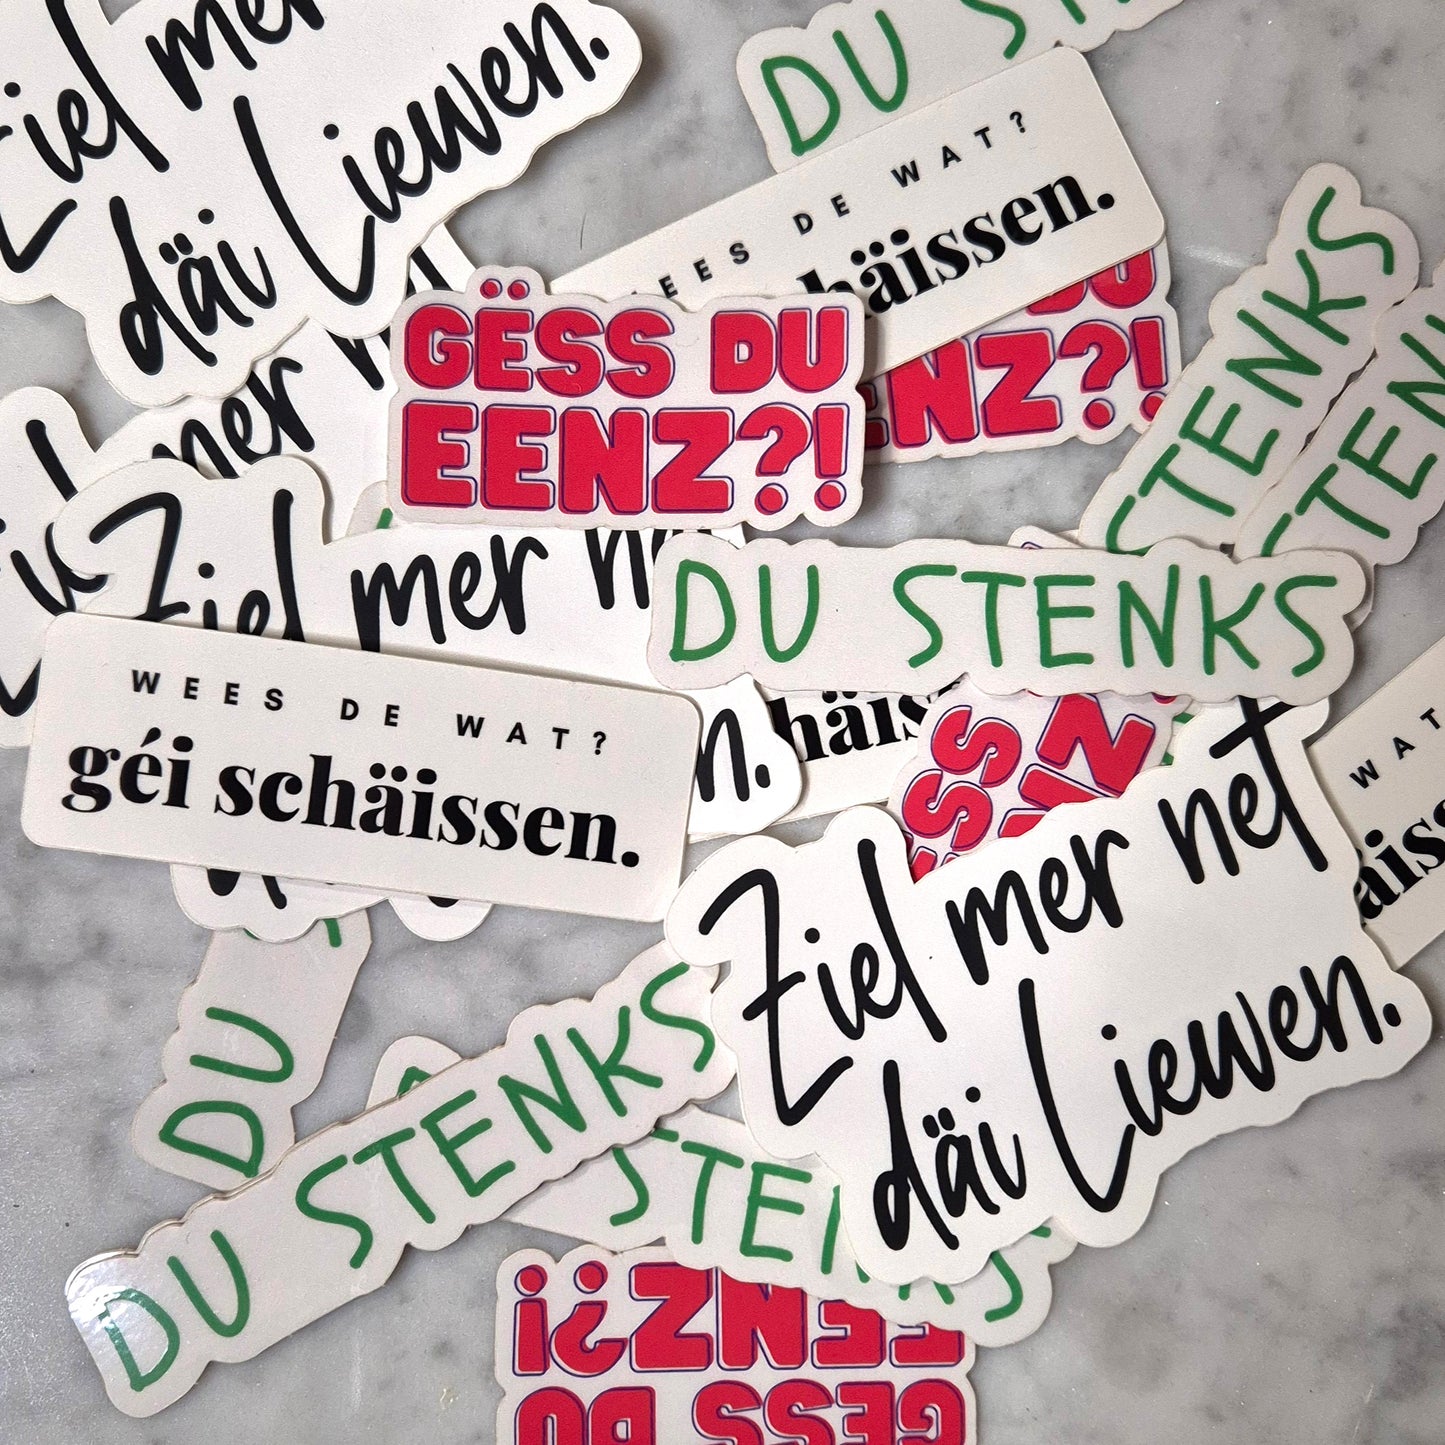 Ziel mer
däi Liewen.
DU ST
WEES DE WAT?
häissen.
GËSS DU
EENZ?!
DU
ENZ?!
STENKS
STEN
mer n
Ziel mer net
n.
DU STENKS
WEES DE WAT?
géi schäissen.
häiss
ESS
NZ
WAT
äiss
Ziel mer net
däi Liewen.
DU
DU STENKS
STENKS
GËSS DU
EENZ?!